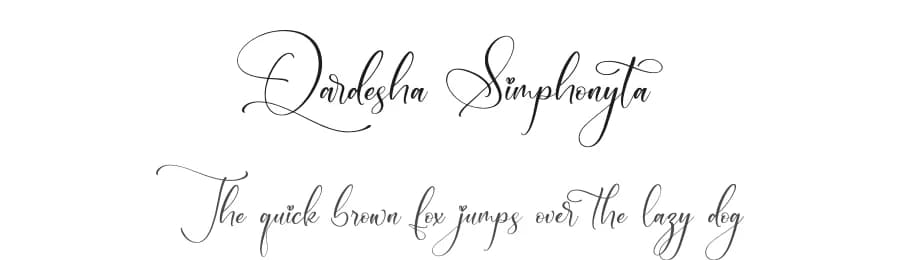 Qardesha Simphonyta
The quick brown fox jumps over the lazy dog